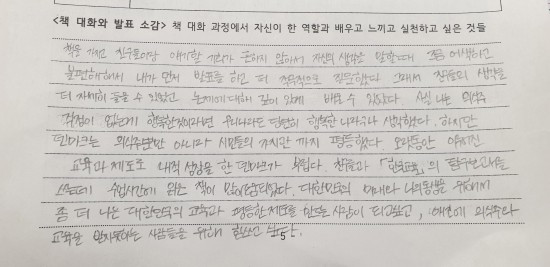 <책 대화와 발표 소감> 책 대화 과정에서 자신이 한 역할과 배우고 느끼고 실천하고 싶은 것들
책을 가지고 친구들이랑 얘기할 기회가 흔하지 않아서 자신의 생각을 말할 때 조금 어색하고
불편해해서 내가 먼저 발표를 하고 더 적극적으로 질문했다. 그래서 친구들의 생각을
더 자세히 들을 수 있었고 논제에 대해 깊이 있게 배울 수 있었다. 사실 나는 의식주
걱정이 없는게 행복한것이라면 우리나라는 당연히 행복한 나라라고 생각했다. 하지만
덴마크는 의식주뿐만 아니라 시민들의 가치관까지 평등했다. 오랫동안 이어진
교육과 제도로 내적 성장을 한 덴마크가 부럽다. 친구들과 의 탐구보고서를
쓰는데 수업시간에 읽은 책이 많이 도움되었다. 대한민국의 미래와 나의 행복을 위해서
좀 더 나은 대한민국의 교육과 평등한 제도를 만드는 사람이 되고싶고, 의식주와
교육을 받지못하는 사람들을 위해 힘쓰고 싶다.
5